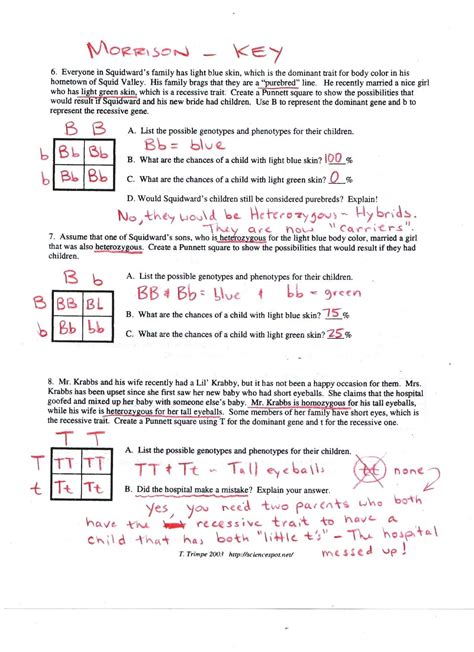 MORRISON - KEY
6. Everyone in Squidward's family has light blue skin, which is the dominant trait for body color in his
hometown of Squid Valley. His family brags that they are a "purebred" line. He recently married a nice girl
who has light green skin, which is a recessive trait. Create a Punnett square to show the possibilities that
would result if Squidward and his new bride had children. Use B to represent the dominant gene and b to
represent the recessive gene.
B B
A. List the possible genotypes and phenotypes for their children.
Bb = blue
b Bb Bb
B. What are the chances of a child with light blue skin? 100 %
b Bb Bb
C. What are the chances of a child with light green skin? 0 %
D. Would Squidward's children still be considered purebreds? Explain!
No, they would be Heterozygous - Hybrids.
They are now "carriers".
7. Assume that one of Squidward's sons, who is heterozygous for the light blue body color, married a girl
that was also heterozygous. Create a Punnett square to show the possibilities that would result if they had
children.
B b
A. List the possible genotypes and phenotypes for their children.
B BB Bb
BB & Bb = blue & bb - green
b Bb bb
B. What are the chances of a child with light blue skin? 75 %
C. What are the chances of a child with light green skin? 25 %
8. Mr. Krabbs and his wife recently had a Lil' Krabby, but it has not been a happy occasion for them. Mrs.
Krabbs has been upset since she first saw her new baby who had short eyeballs. She claims that the hospital
goofed and mixed up her baby with someone else's baby. Mr. Krabbs is homozygous for his tall eyeballs,
while his wife is heterozygous for her tall eyeballs. Some members of her family have short eyes, which is
the recessive trait. Create a Punnett square using T for the dominant gene and t for the recessive one.
T T
A. List the possible genotypes and phenotypes for their children.
T TT TT
TT & Tt - Tall eyeballs tt none
t Tt Tt
B. Did the hospital make a mistake? Explain your answer.
Yes, you need two parents who both
have the recessive trait to have a
child that has both "little t's" - The hospital
messed up!
T. Trimpe 2003 http://sciencespot.net/